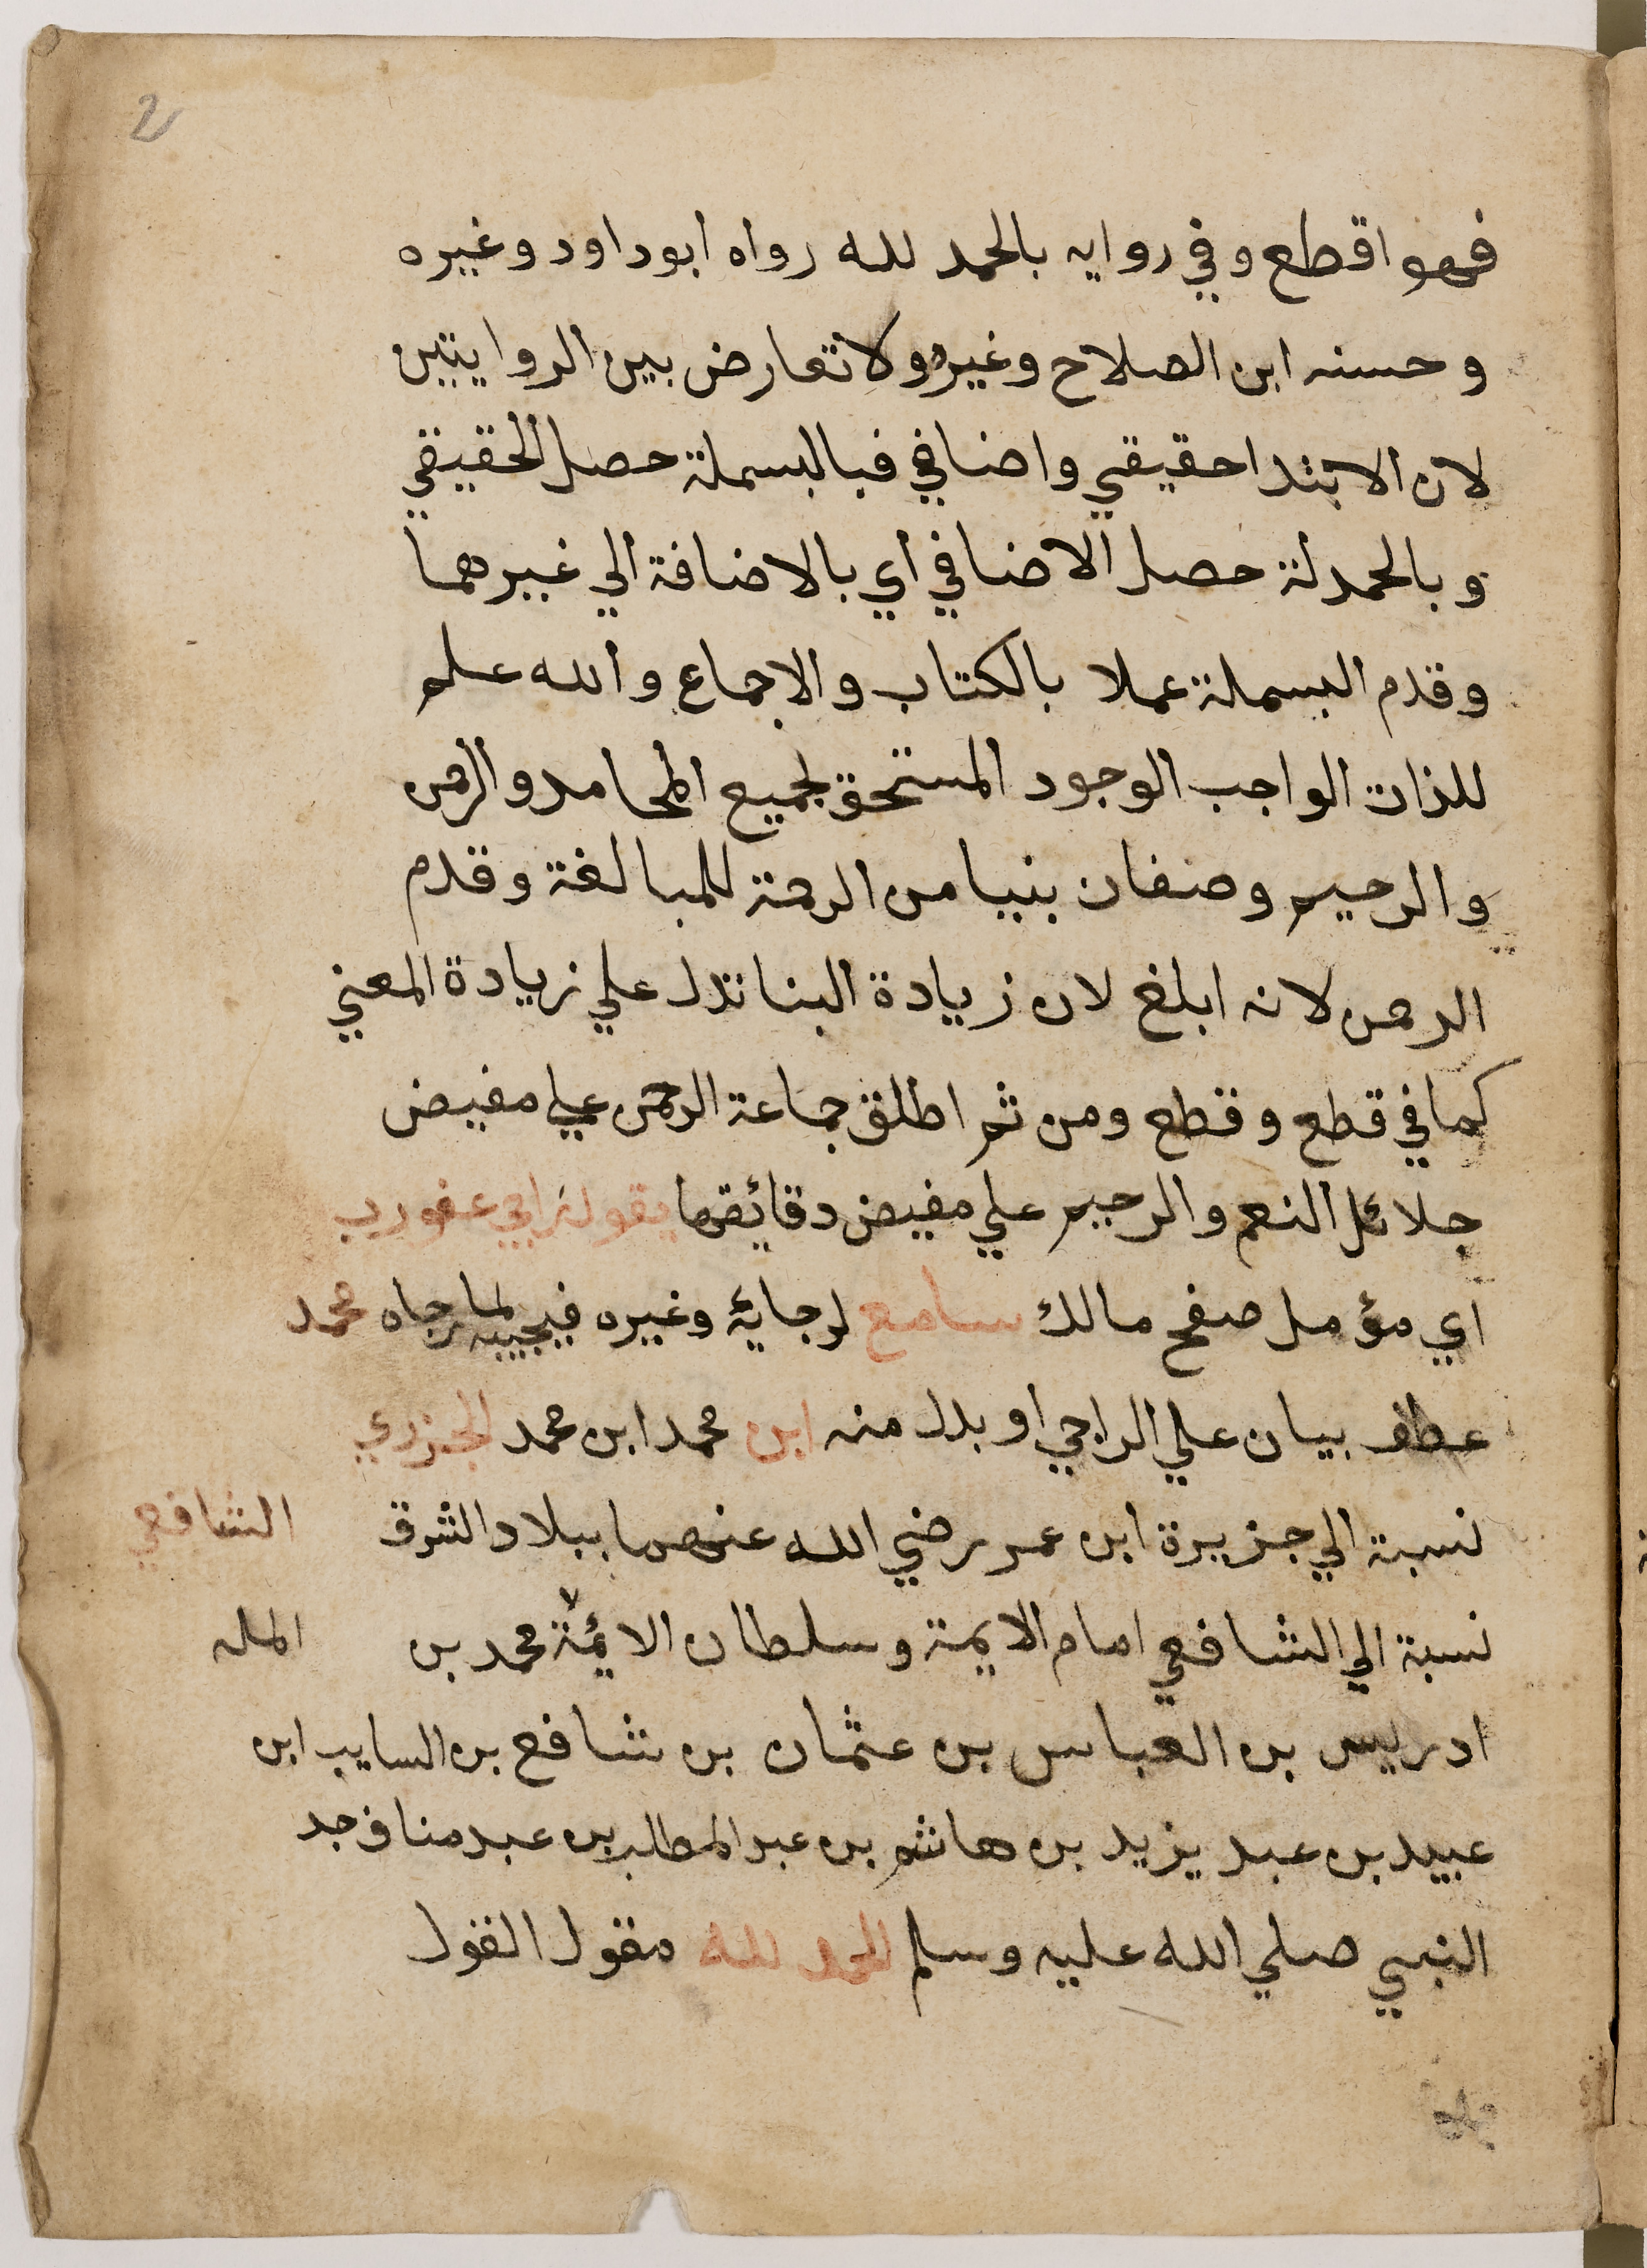 2
فهو اقطع وفي روايه بالحمد لله رواه ابوداود وغيره
وحسنه ابن الصلاح وغيره ولا تعارض بين الروايتين
لان الابتدا حقيقي واضافي فبالبسملة حصل الحقيقي
وبالحمدلة حصل الاضافي اي بالاضافة الي غيرهما
وقدم البسملة عملا بالكتاب والاجماع والله علم
للذات الواجب الوجود المستحق لجميع المحامد والرحمن
والرحيم وصفان بنيا من الرحمة للمبالغة وقدم
الرحمن لانه ابلغ لان زيادة البنا تدل علي زيادة المعني
كما في قطع وقطع ومن ثم اطلق جماعة الرحمن علي مفيض
جلائل النعم والرحيم علي مفيض دقائقها يقول راجي عفو رب
اي مؤمل صفح مالك سامع لرجائه وغيره فيجيبه لما رجاه محمد
عطف بيان علي الراجي او بدل منه ابن محمد ابن محمد الجزري
نسبة الي جزيرة ابن عمر رضي الله عنهما ببلاد الشرق الشافعي
نسبة الي الشافعي امام الايمة وسلطان الائمة محمد بن
ادريس بن العباس بن عثمان بن شافع بن السايب ابن
عبيد بن عبد يزيد بن هاشم بن عبد المطلب بن عبد مناف جد
النبي صلي الله عليه وسلم الحمد لله مقول القول